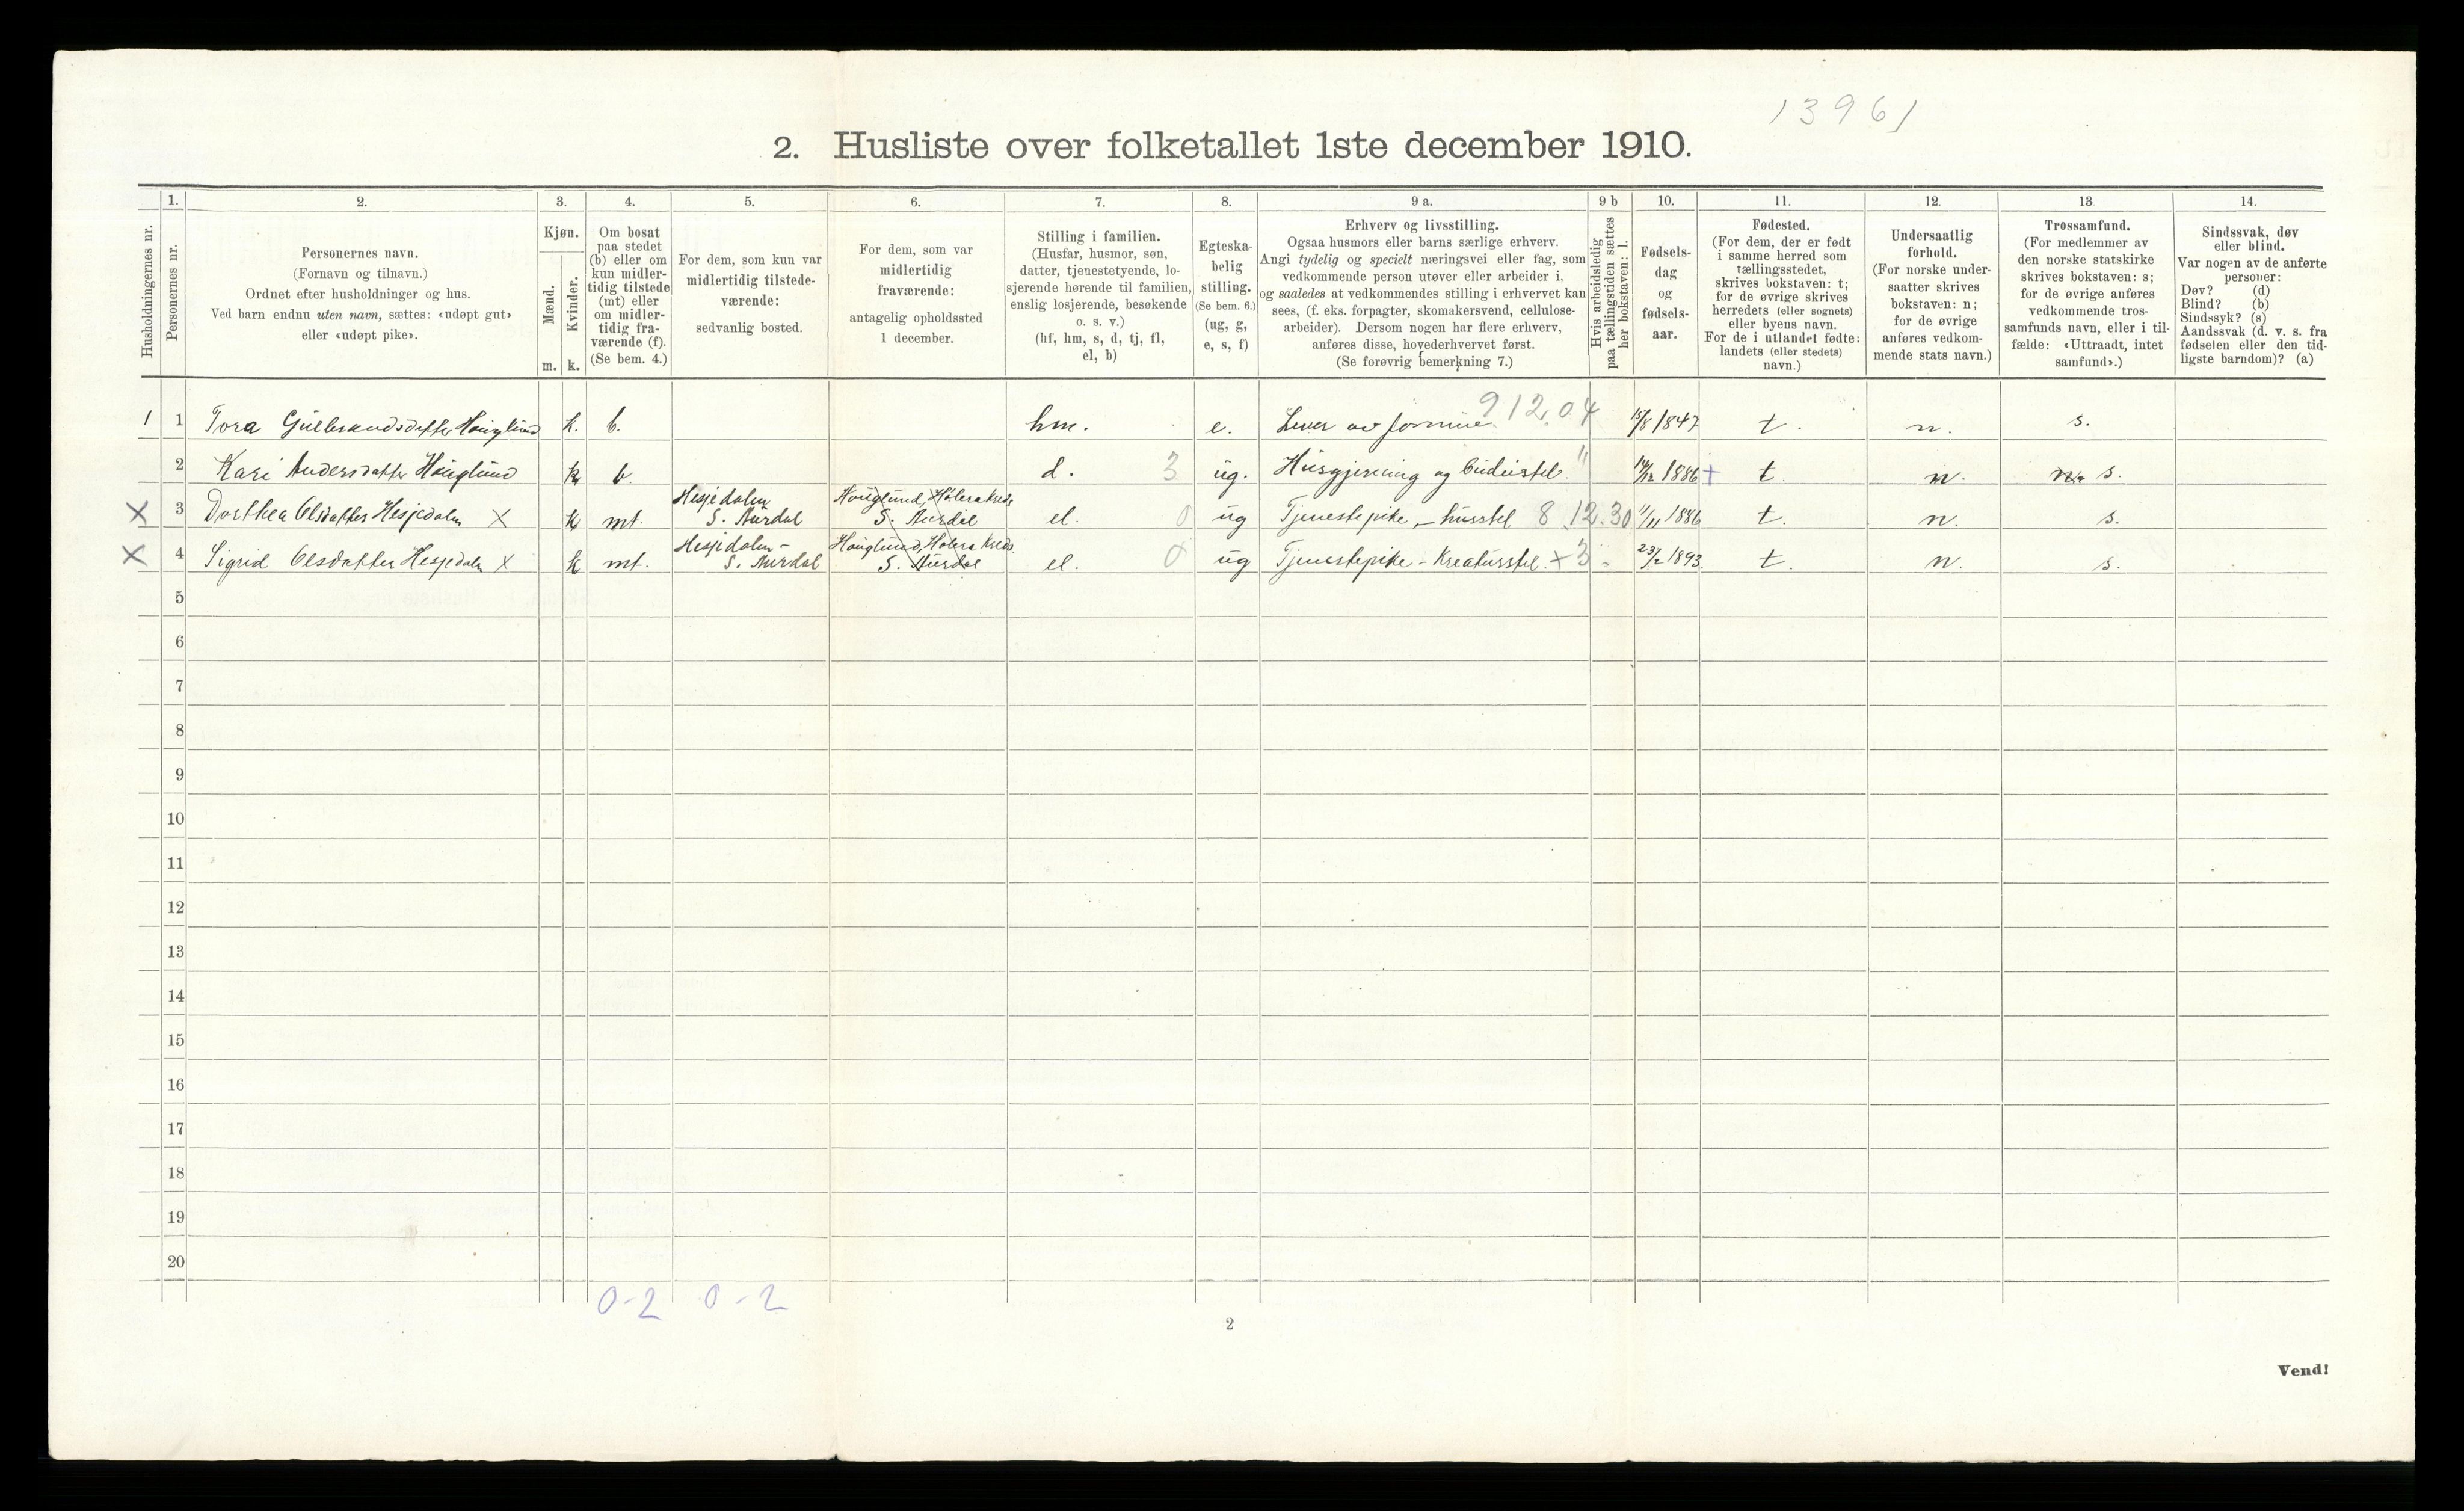 13961
2. Husliste over folketallet 1ste december 1910.
Husholdningernes nr.
1.
Personernes nr.
2.
Personernes navn.
(Fornavn og tilnavn.)
Ordnet efter husholdninger og hus.
Ved barn endnu uten navn, sættes: «udøpt gut»
eller «udøpt pike».
3.
Kjøn.
Mænd.
Kvinder.
m. k.
4.
Om bosat
paa stedet
(b) eller om
kun midler-
tidig tilstede
(mt) eller
om midler-
tidig fra-
værende (f).
(Se bem. 4.)
5.
For dem, som kun var
midlertidig tilstede-
værende:
sedvanlig bosted.
6.
For dem, som var
midlertidig
fraværende:
antagelig opholdssted
1 december.
7.
Stilling i familien.
(Husfar, husmor, søn,
datter, tjenestetyende, lo-
sjerende hørende til familien,
enslig losjerende, besøkende
o. s. v.)
(hf, hm, s, d, tj, fl,
el, b)
8.
Egteska-
belig
stilling.
(Se bem. 6.)
(ug, g,
e, s, f)
9 a.
Erhverv og livsstilling.
Ogsaa husmors eller barns særlige erhverv.
Angi tydelig og specielt næringsvei eller fag, som
vedkommende person utøver eller arbeider i,
og saaledes at vedkommendes stilling i erhvervet kan
sees, (f. eks. forpagter, skomakersvend, cellulose-
arbeider). Dersom nogen har flere erhverv,
anføres disse, hovederhvervet først.
(Se forøvrig bemerkning 7.)
9 b
Hvis arbeidsledig
paa tællingstiden sættes
her bokstaven: l.
10.
Fødsels-
dag
og
fødsels-
aar.
11.
Fødested.
(For dem, der er født
i samme herred som
tællingsstedet,
skrives bokstaven: t;
for de øvrige skrives
herredets (eller sognets)
eller byens navn.
For de i utlandet fødte:
landets (eller stedets)
navn.)
12.
Undersaatlig
forhold.
(For norske under-
saatter skrives
bokstaven: n;
for de øvrige
anføres vedkom-
mende stats navn.)
13
Trossamfund.
(For medlemmer av
den norske statskirke
skrives bokstaven: s;
for de øvrige anføres
vedkommende tros-
samfunds navn, eller i til-
fælde: «Uttraadt, intet
samfund».)
14.
Sindssvak, døv
eller blind.
Var nogen av de anførte
personer:
Døv? (d)
Blind? (b)
Sindssyk? (s)
Aandssvak (d. v. s. fra
fødselen eller den tid-
ligste barndom)? (a)
1 1 Tora Gulbrandsdatter Höuglund k. b. hm. e. Lever av formue 912.04 15/8 1847 t. n. s.
2 Kari Andersdatter Höuglund k b. d. 3 ug. Husgjerning og budeistel " 14/12 1886 + t. n. s.
X 3 Dorthea Olsdatter Hesjedalen X k mt. Hesjedalen S. Aurdal Höuglund, Hølera kreds S. Aurdal el. 0 ug Tjenestepike – husstel 8.12.30 11/11 1886 t. n. s.
X 4 Sigrid Olsdatter Hesjedalen X k mt. Hesjedalen – S. Aurdal Höuglund, Hølera Kreds S. Aurdal el. 0 ug Tjenestepike – Kreaturstel. x 3 23/2 1893 t. n. s.
5
6
7
8
9
10
11
12
13
14
15
16
17
18
19
20
0-2 0-2
2
Vend!